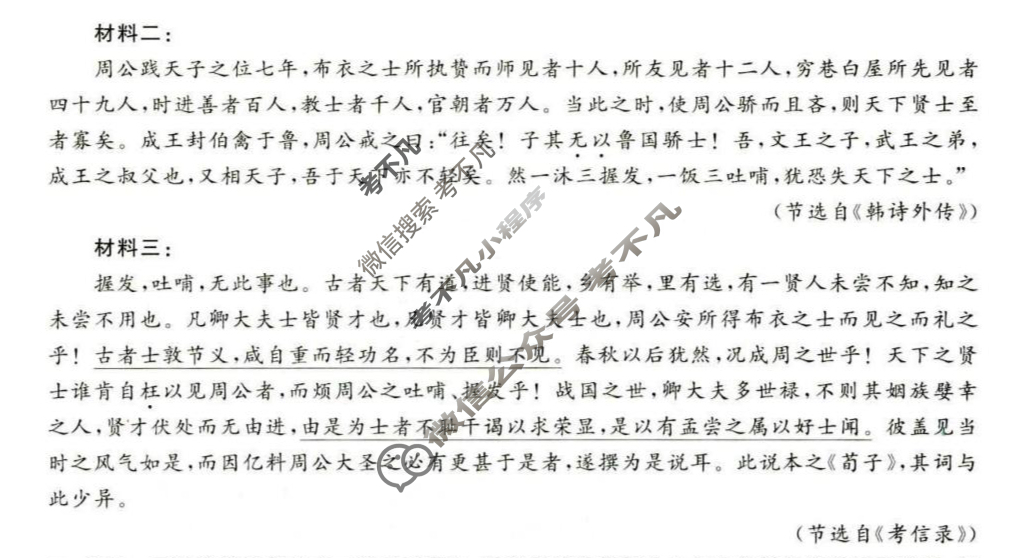 材料二：
周公践天子之位七年，布衣之士所执贽而师见者十人，所友见者十二人，穷巷白屋所先见者
四十九人，时进善者百人，教士者千人，官朝者万人。当此之时，使周公骄而且吝，则天下贤士至
者寡矣。成王封伯禽于鲁，周公戒之曰：“往矣！子其无以鲁国骄士！吾，文王之子，武王之弟，
成王之叔父也，又相天子，吾于天下亦不轻矣。然一沐三握发，一饭三吐哺，犹恐失天下之士。”
（节选自《韩诗外传》）
材料三：
握发，吐哺，无此事也。古者天下有道，进贤使能，乡有举，里有选，有一贤人未尝不知，知之
未尝不用也。凡卿大夫士皆贤才也，凡贤才皆卿大夫士也，周公安所得布衣之士而见之而礼之
乎！古者士敦节义，咸自重而轻功名，不为臣则不见。春秋以后犹然，况成周之世乎！天下之贤
士谁肯自枉以见周公者，而烦周公之吐哺、握发乎！战国之世，卿大夫多世禄，不则其姻族嬖幸
之人，贤才伏处而无由进，由是为士者不耻干谒以求荣显，是以有孟尝之属以好士闻。彼盖见当
时之风气如是，而因亿料周公大圣之必有更甚于是者，遂撰为是说耳。此说本之《荀子》，其词与
此少异。
（节选自《考信录》）
考不凡
微信搜索 考不凡
考不凡小程序
微信公众号 考不凡